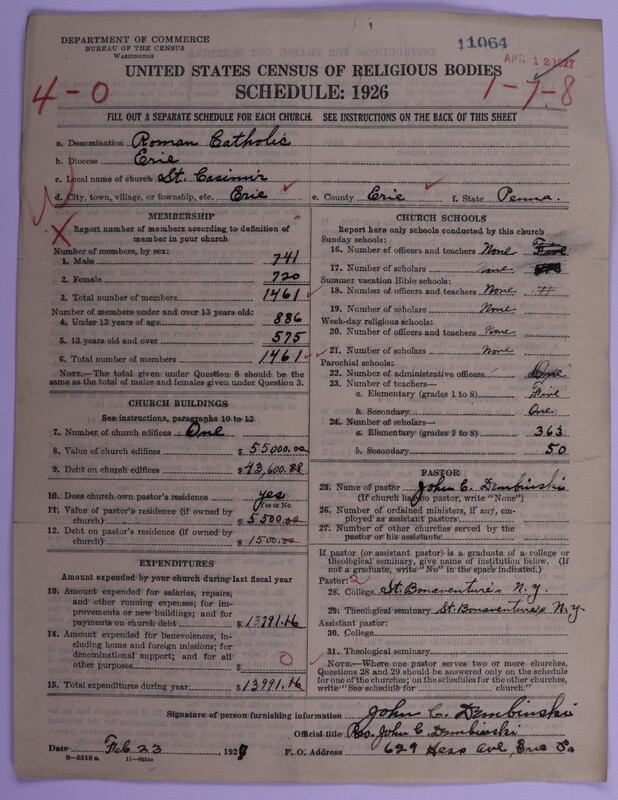 DEPARTMENT OF COMMERCE
BUREAU OF THE CENSUS
WASHINGTON
11064
APR 12 1927
UNITED STATES CENSUS OF RELIGIOUS BODIES
SCHEDULE: 1926
4-0
1-7-8
FILL OUT A SEPARATE SCHEDULE FOR EACH CHURCH. SEE INSTRUCTIONS ON THE BACK OF THIS SHEET
a. Denomination Roman Catholic
b. Diocese Erie
c. Local name of church St. Casimir
d. City, town, village, or township, etc. Erie e. County Erie f. State Penna.
MEMBERSHIP
X
Report number of members according to definition of
member in your church
Number of members, by sex:
1. Male 741
2. Female 720
3. Total number of members 1461
Number of members under and over 13 years old:
4. Under 13 years of age 886
5. 13 years old and over 575
6. Total number of members 1461
NOTE.—The total given under Question 6 should be
same as the total of males and females given under Question 3.
CHURCH BUILDINGS
See instructions, paragraphs 10 to 12
7. Number of church edifices One
8. Value of church edifices $ 55000.00
9. Debt on church edifices $ 43,600.88
10. Does church own pastor's residence yes
Yes or No
11. Value of pastor's residence (if owned by
church) $ 5500.00
12. Debt on pastor's residence (if owned by
church) $ 1500.00
EXPENDITURES
Amount expended by your church during last fiscal year
13. Amount expended for salaries, repairs,
and other running expenses; for im-
provements or new buildings; and for
payments on church debt $ 13991.16
14. Amount expended for benevolences, in-
cluding home and foreign missions; for
denominational support; and for all
other purposes $ 0
15. Total expenditures during year $ 13991.16
CHURCH SCHOOLS
Report here only schools conducted by this church
Sunday schools:
16. Number of officers and teachers None
17. Number of scholars None
Summer vacation Bible schools:
18. Number of officers and teachers None
19. Number of scholars None
Week-day religious schools:
20. Number of officers and teachers None
21. Number of scholars None
Parochial schools:
22. Number of administrative officers One
23. Number of teachers—
a. Elementary (grades 1 to 8) Five
b. Secondary One
24. Number of scholars—
a. Elementary (grades 1 to 8) 363
b. Secondary 50
PASTOR
25. Name of pastor John C. Dembinski
(If church has no pastor, write "None")
26. Number of ordained ministers, if any, em-
ployed as assistant pastors
27. Number of other churches served by the
pastor or his assistants
If pastor (or assistant pastor) is a graduate of a college or
theological seminary, give name of institution below. (If
not a graduate, write "No" in the space indicated.)
Pastor: 2
28. College St. Bonaventure's N.Y.
29. Theological seminary St. Bonaventure's N.Y.
Assistant pastor:
30. College
31. Theological seminary
NOTE.—Where one pastor serves two or more churches,
Questions 28 and 29 should be answered only on the schedule
for one of the churches; on the schedules for the other churches,
write "See schedule for church."
Signature of person furnishing information John C. Dembinski
Official title Rev. John C. Dembinski
Date Feb 23, 192 P. O. Address 629 Hess Ave, Erie Pa
8—5518a 11—9054a